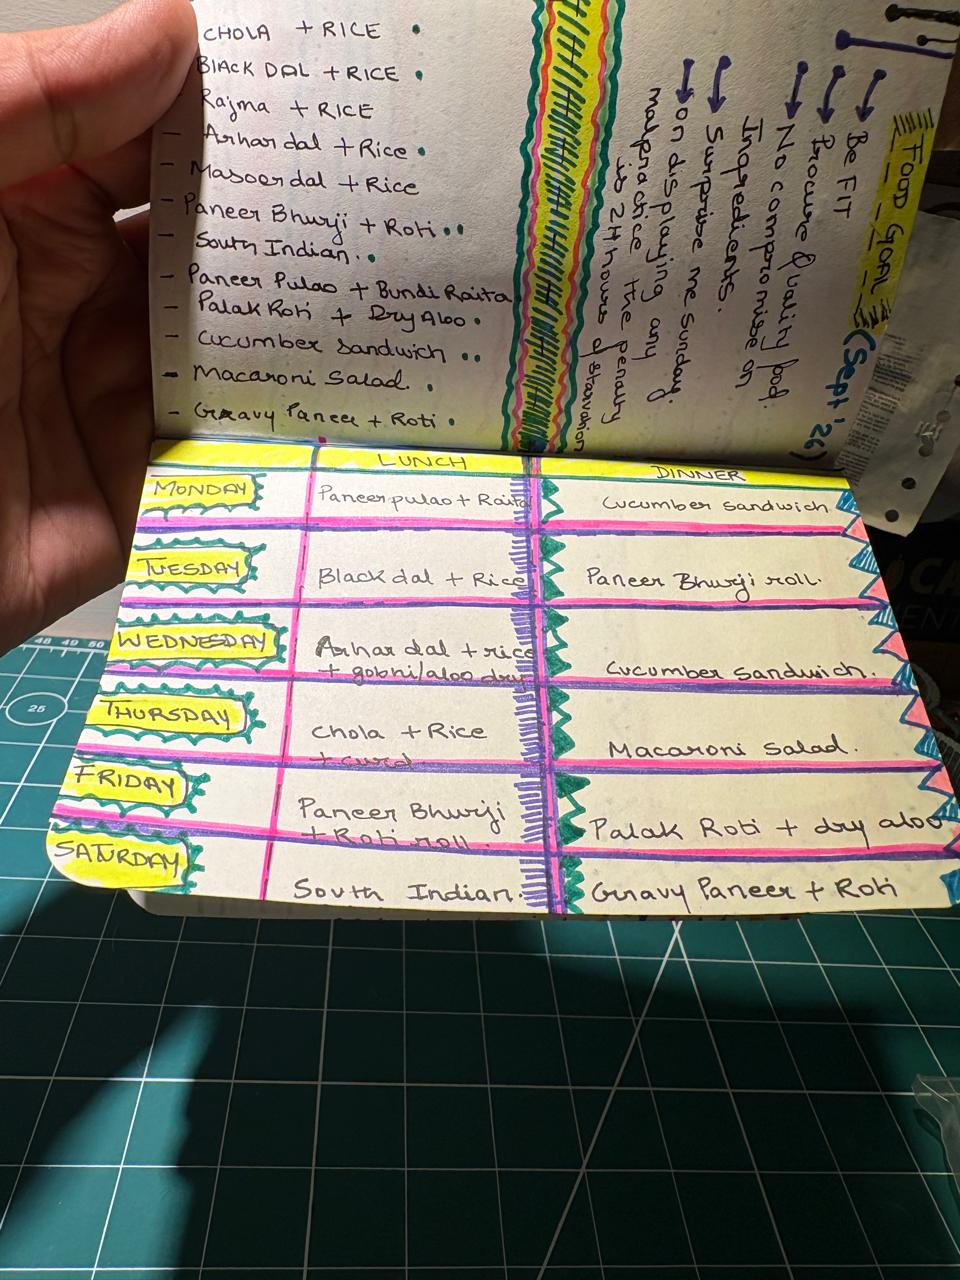 CHOLA + RICE •
BLACK DAL + RICE •
Rajma + RICE
- Arhar dal + Rice •
- Masoor dal + Rice
- Paneer Bhurji + Roti ••
- South Indian. •
- Paneer Pulao + Bundi Raita
- Palak Roti + Dry Aloo •
- Cucumber Sandwich ••
- Macaroni Salad. •
- Gravy Paneer + Roti •
FOOD GOAL (Sept '26)
→ Be FIT
→ Browse Quality food.
→ No compromise on
Ingredients.
→ Surprise me Sunday.
→ on displaying any
malpractice the penalty
is 24 hours of starvation
LUNCH DINNER
MONDAY Paneer pulao + Raita Cucumber Sandwich
TUESDAY Black dal + Rice Paneer Bhurji roll.
WEDNESDAY Arhar dal + rice
+ gobhi/aloo dry Cucumber Sandwich.
THURSDAY Chola + Rice
+ curd. Macaroni Salad.
FRIDAY Paneer Bhurji
+ Roti roll. Palak Roti + dry aloo
SATURDAY South Indian. Gravy Paneer + Roti
48 49 50
25